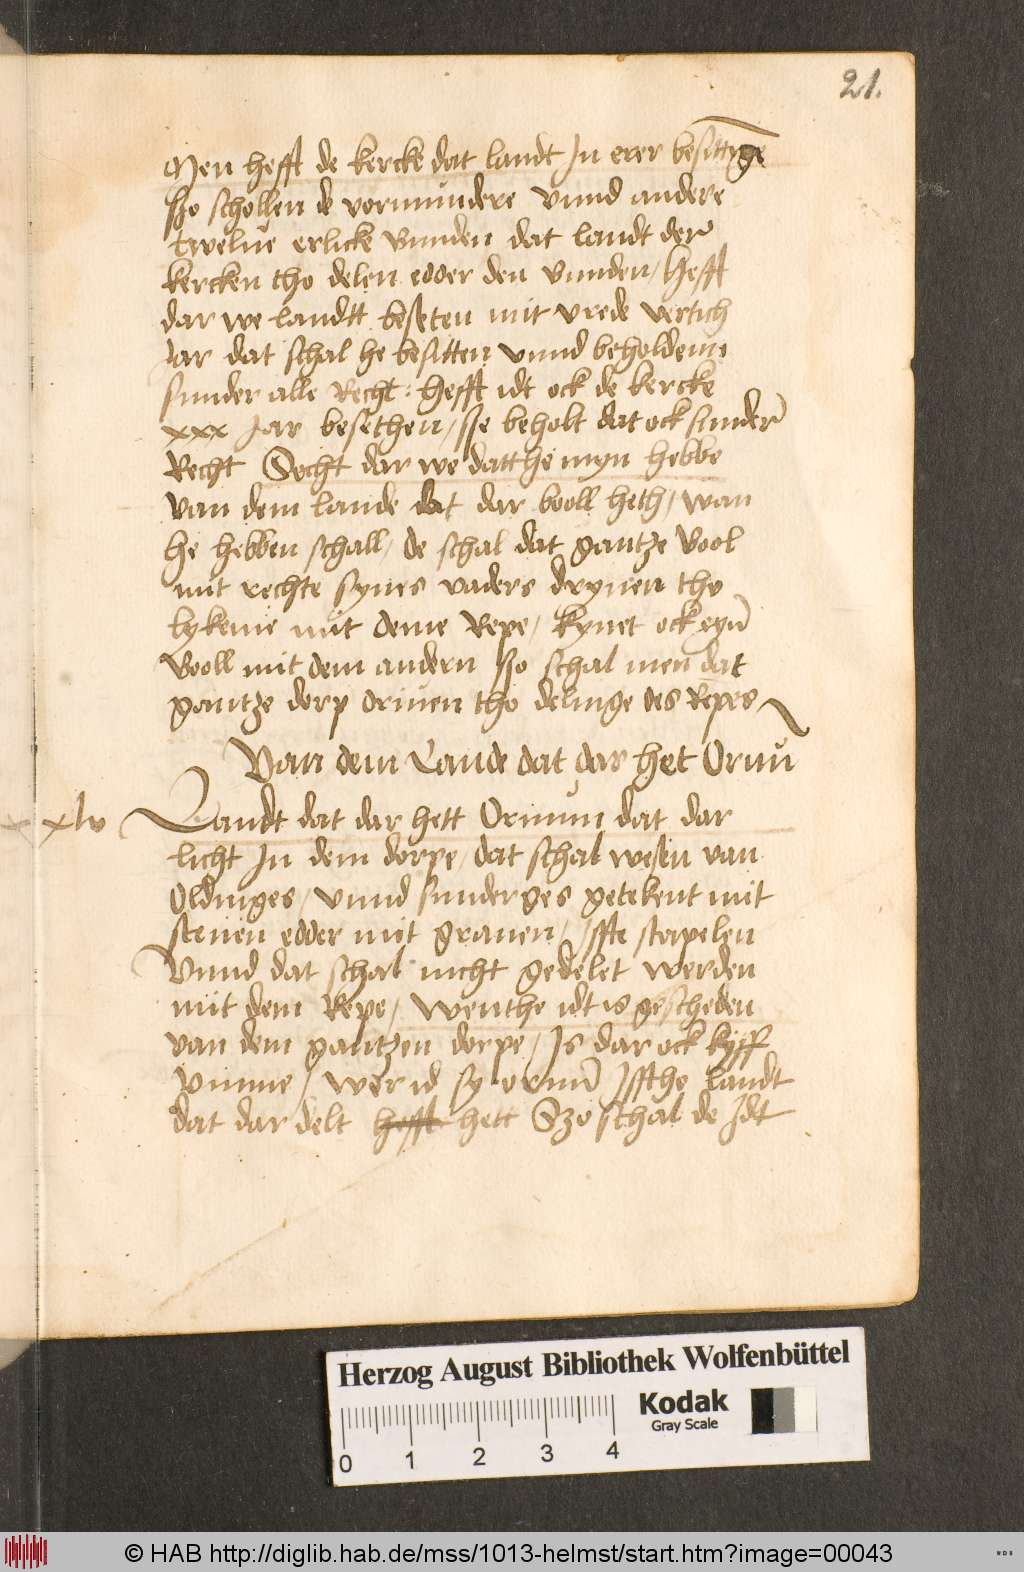 21.
Men hefft de kercke dat landt In erer besittyge
sso schollen de vormundere vnnd andere
twelue erlicke Bunden dat landt der
kercken tho delen edder den Bunden / hefft
dar we landtt beseten mit vrede vertich
Jar dat schal he besitten vnnd beholdenn
sunder alle Recht : hefft idt ock de kercke
xxx Jar besethen / sse beholt dat ock sunder
Recht Secht dar we datt he myn hebbe
van dem lande dat dar booll heth / wan
he hebben schall / de schal dat gantze Bool
mit rechte synes vaders dryuen tho
lykenne mit deme Repe / kyuet ock eyn
Booll mit dem andern sso schal men dat
gantze dorp driuen tho delinge des Repes
Van dem Lande dat dar het Ornu
xlv
Landt dat dar hett Ornum dat dar
licht In dem dorpe / dat schal wesen van
Oldinges / vnnd sunderges getekent mit
stenen edder mit grauen / Iffte stapelen
Vnnd dat schal nicht gedelet werden
mit dem Repe / wenthe idt is gescheden
van dem gantzen dorpe / Is dar ock kyff
vmme / wer id sy ornu Iffthe landt
dat dar delt hefft hett Szo schal de Idt
Herzog August Bibliothek Wolfenbüttel
Kodak
Gray Scale
0 1 2 3 4
© HAB http://diglib.hab.de/mss/1013-helmst/start.htm?image=00043